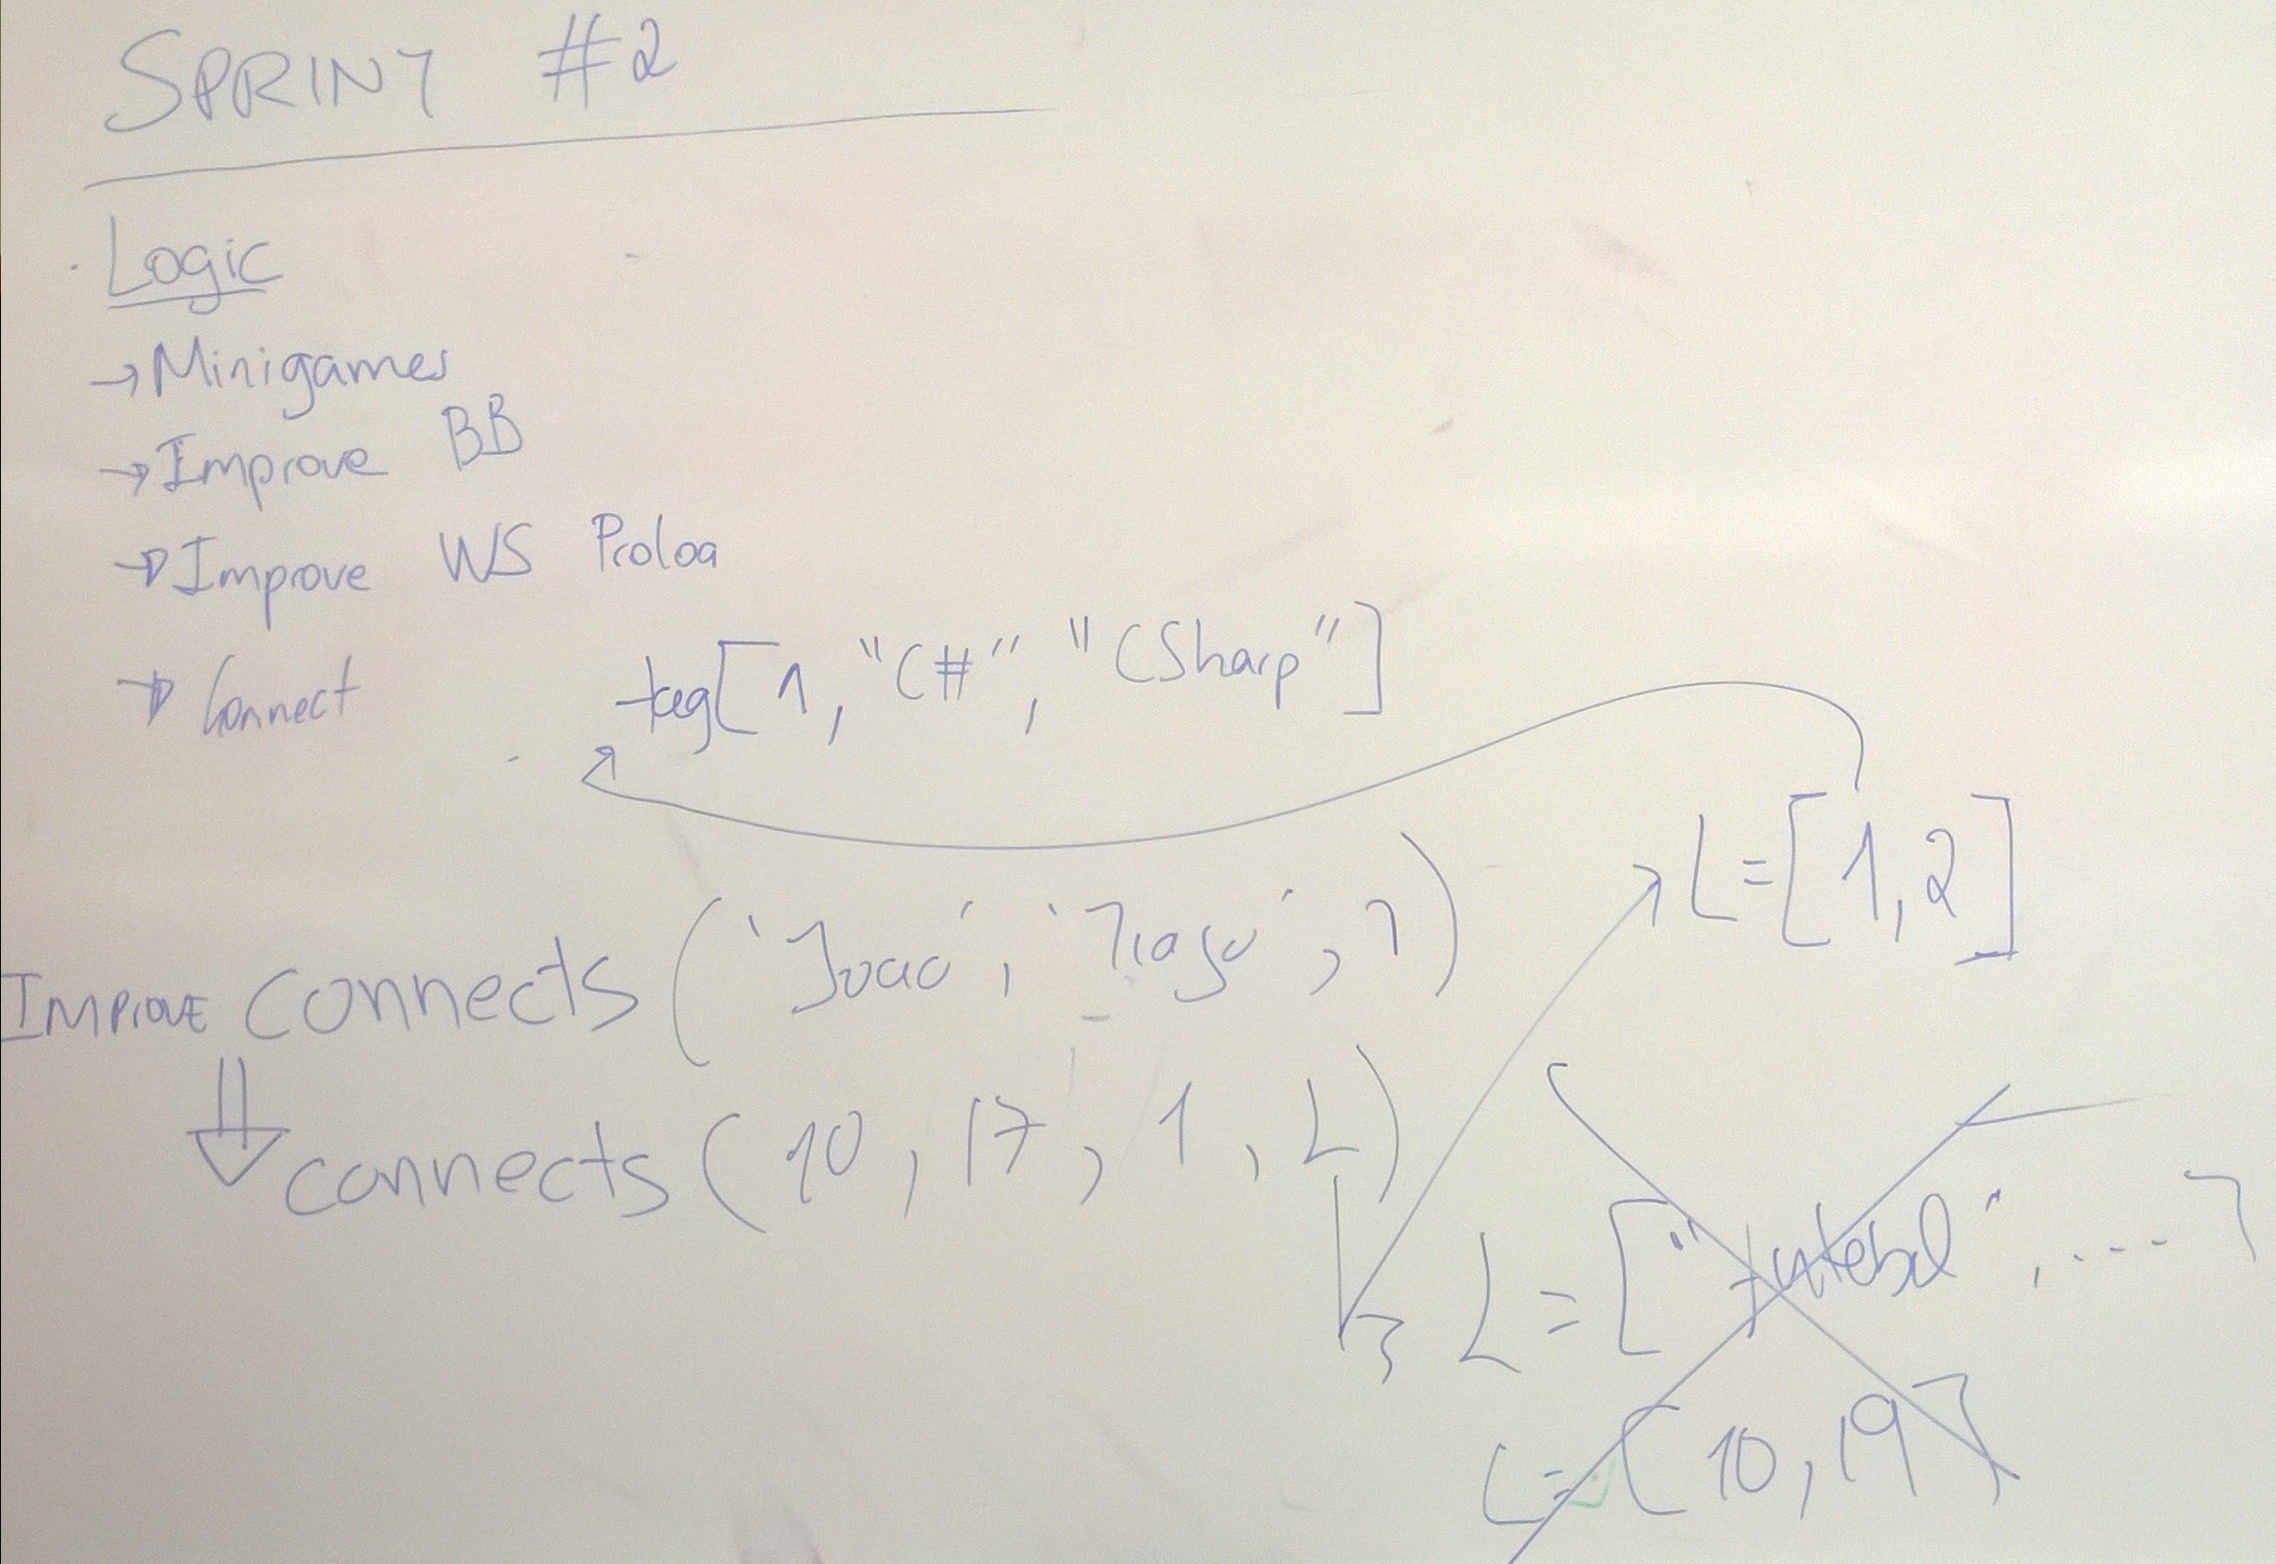 SPRINT #2
Logic
→ Minigames
→ Improve BB
→ Improve WS Prolog
→ Connect
tag[1, "C#", "CSharp"]
L=[1,2]
IMPROVE connects('Joao', 'Tiago', 1)
connects(10, 17, 1, L)
L=["futebol", ....]
L=[10,19]